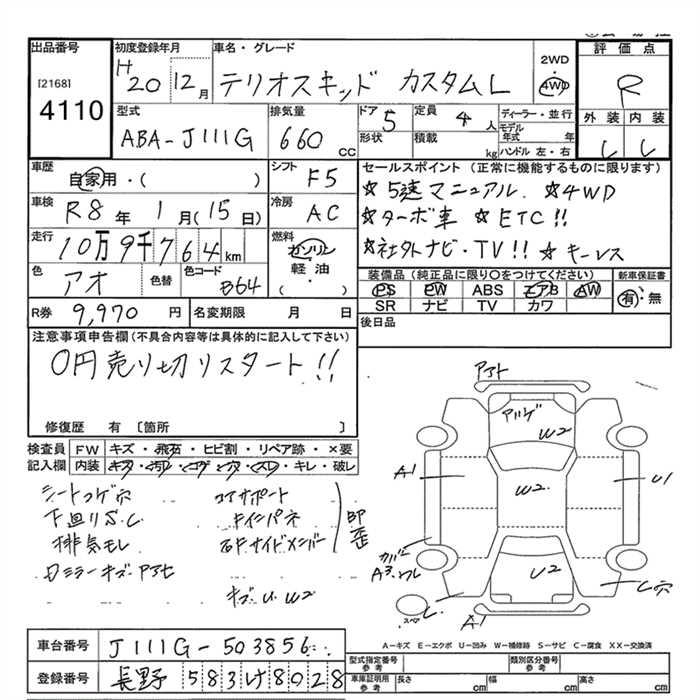 出品番号 初度登録年月 車名・グレード 2WD 4WD 評価点
[2168] H20 12月 テリオスキッド カスタムL R
4110
型式 排気量 ドア 定員 ディーラー・並行 外装 内装
ABA-J111G 660cc 5 4人 モデル年式 年
形状 積載 kg ハンドル 左・右
車歴 自家用・( ) シフト F5
セールスポイント (正常に機能するものに限ります)
☆5速マニュアル. ☆4WD
車検 R8年 1月(15日) 冷房 AC
☆ターボ車 ☆ETC!!
走行 10万9千764km 燃料 ガソリン 軽油 ( )
☆社外ナビ・TV!! ☆キーレス
色 アオ 色替 色コード B64
装備品 (純正品に限り〇をつけてください) 新車保証書
PS PW ABS エアB AW 有・無
SR ナビ TV カワ
R券 9,970円 名変期限 月 日 後日品
注意事項申告欄(不具合内容等は具体的に記入して下さい)
0円売り切りスタート!!
修復歴 有 [箇所 ]
検査員記入欄 FW キズ・飛石・ヒビ割・リペア跡・×要
内装 キズ・汚レ・コゲ・穴・スレ・キレ・破レ
シートコゲ穴 コアサポート
下廻りS.C 右インパネ
排気モレ 右Fサイドメンバー
キズ U W2
アアト
W2
A1 W2 U1
U2
A1
A-キズ E-エクボ U-凹み W-補修跡 S-サビ C-腐食 XX-交換済
車台番号 J111G-503856
型式指定番号 参考 類別区分番号 参考
登録番号 長野 583け8028
車庫証明用 参考 長さ cm 幅 cm 高さ cm